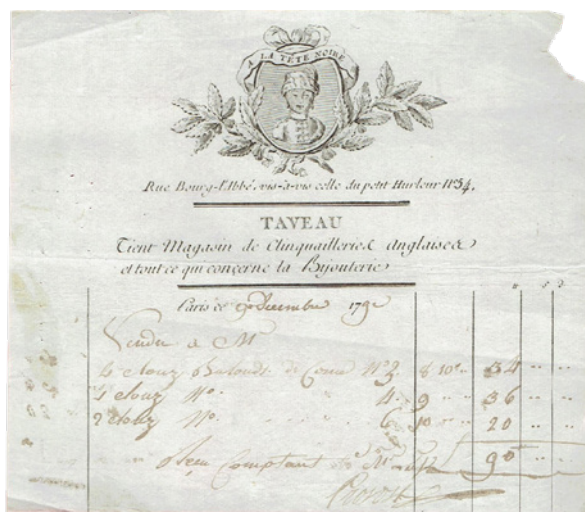 A LA TÊTE NOIRE
Rue Bourg-l'Abbé, vis-à-vis celle du petit Hurleur N°54.
TAVEAU
Tient Magasin de Clinquailleries anglaises
et tout ce qui concerne la Bijouterie
Paris ce Decembre 179
Vendu a M
4 clouz de N° 3. 8 10 34
4 clouz N°. 4. 9 36
2 clouz N°. 6 10 20
Comptant 90